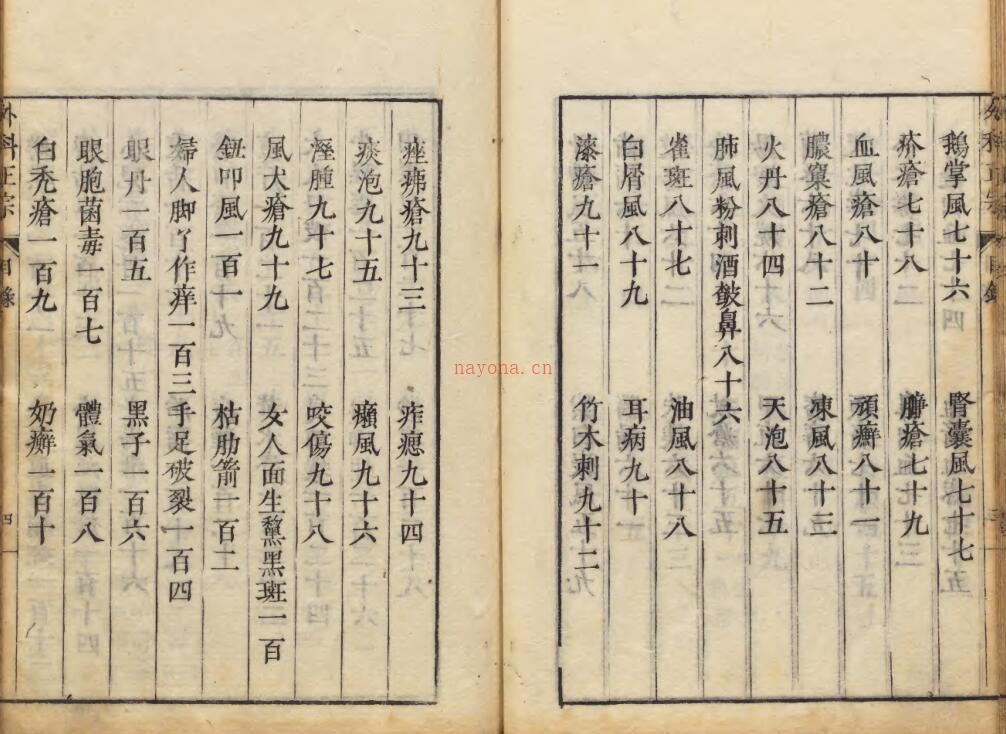 鵝掌風七十六
腎囊風七十七
疥瘡七十八
臁瘡七十九
血風瘡八十
頑癬八十一
膿窠瘡八十二
凍風八十三
火丹八十四
天泡八十五
肺風粉刺酒皶鼻八十六
雀斑八十七
油風八十八
白屑風八十九
耳病九十
漆瘡九十一
竹木刺九十二
痤疿瘡九十三
痄腮九十四
痰泡九十五
癩風九十六
溼腫九十七
咬傷九十八
風犬瘡九十九
女人面生黧黑斑一百
鈕叩風一百一
枯肋箭一百二
婦人脚了作痒一百三
手足破裂一百四
眼丹一百五
黑子一百六
眼胞菌毒一百七
體氣一百八
白禿瘡一百九
奶癬一百十
外科正宗
目錄
四
nayona.cn